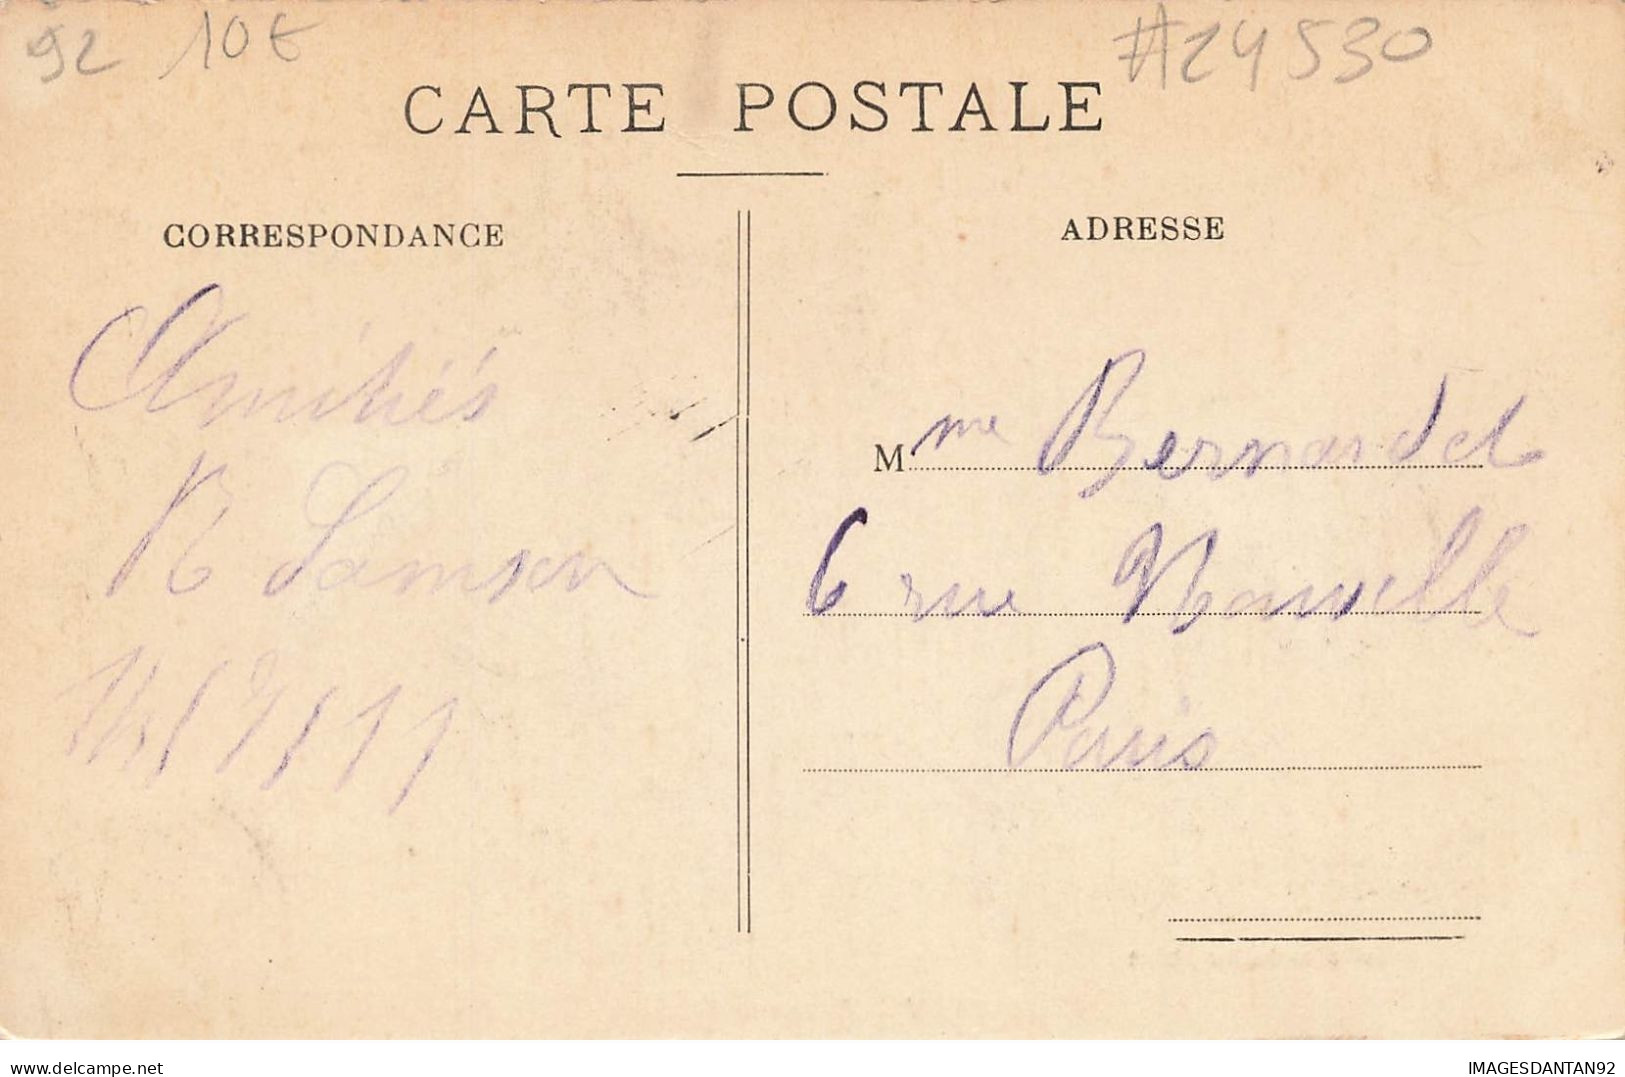 92 10€ #24530
CARTE POSTALE
CORRESPONDANCE
Amitiés
R Samson
ADRESSE
Mme Bernardel
6 rue
Paris
delcampe.net
IMAGESDANTAN92